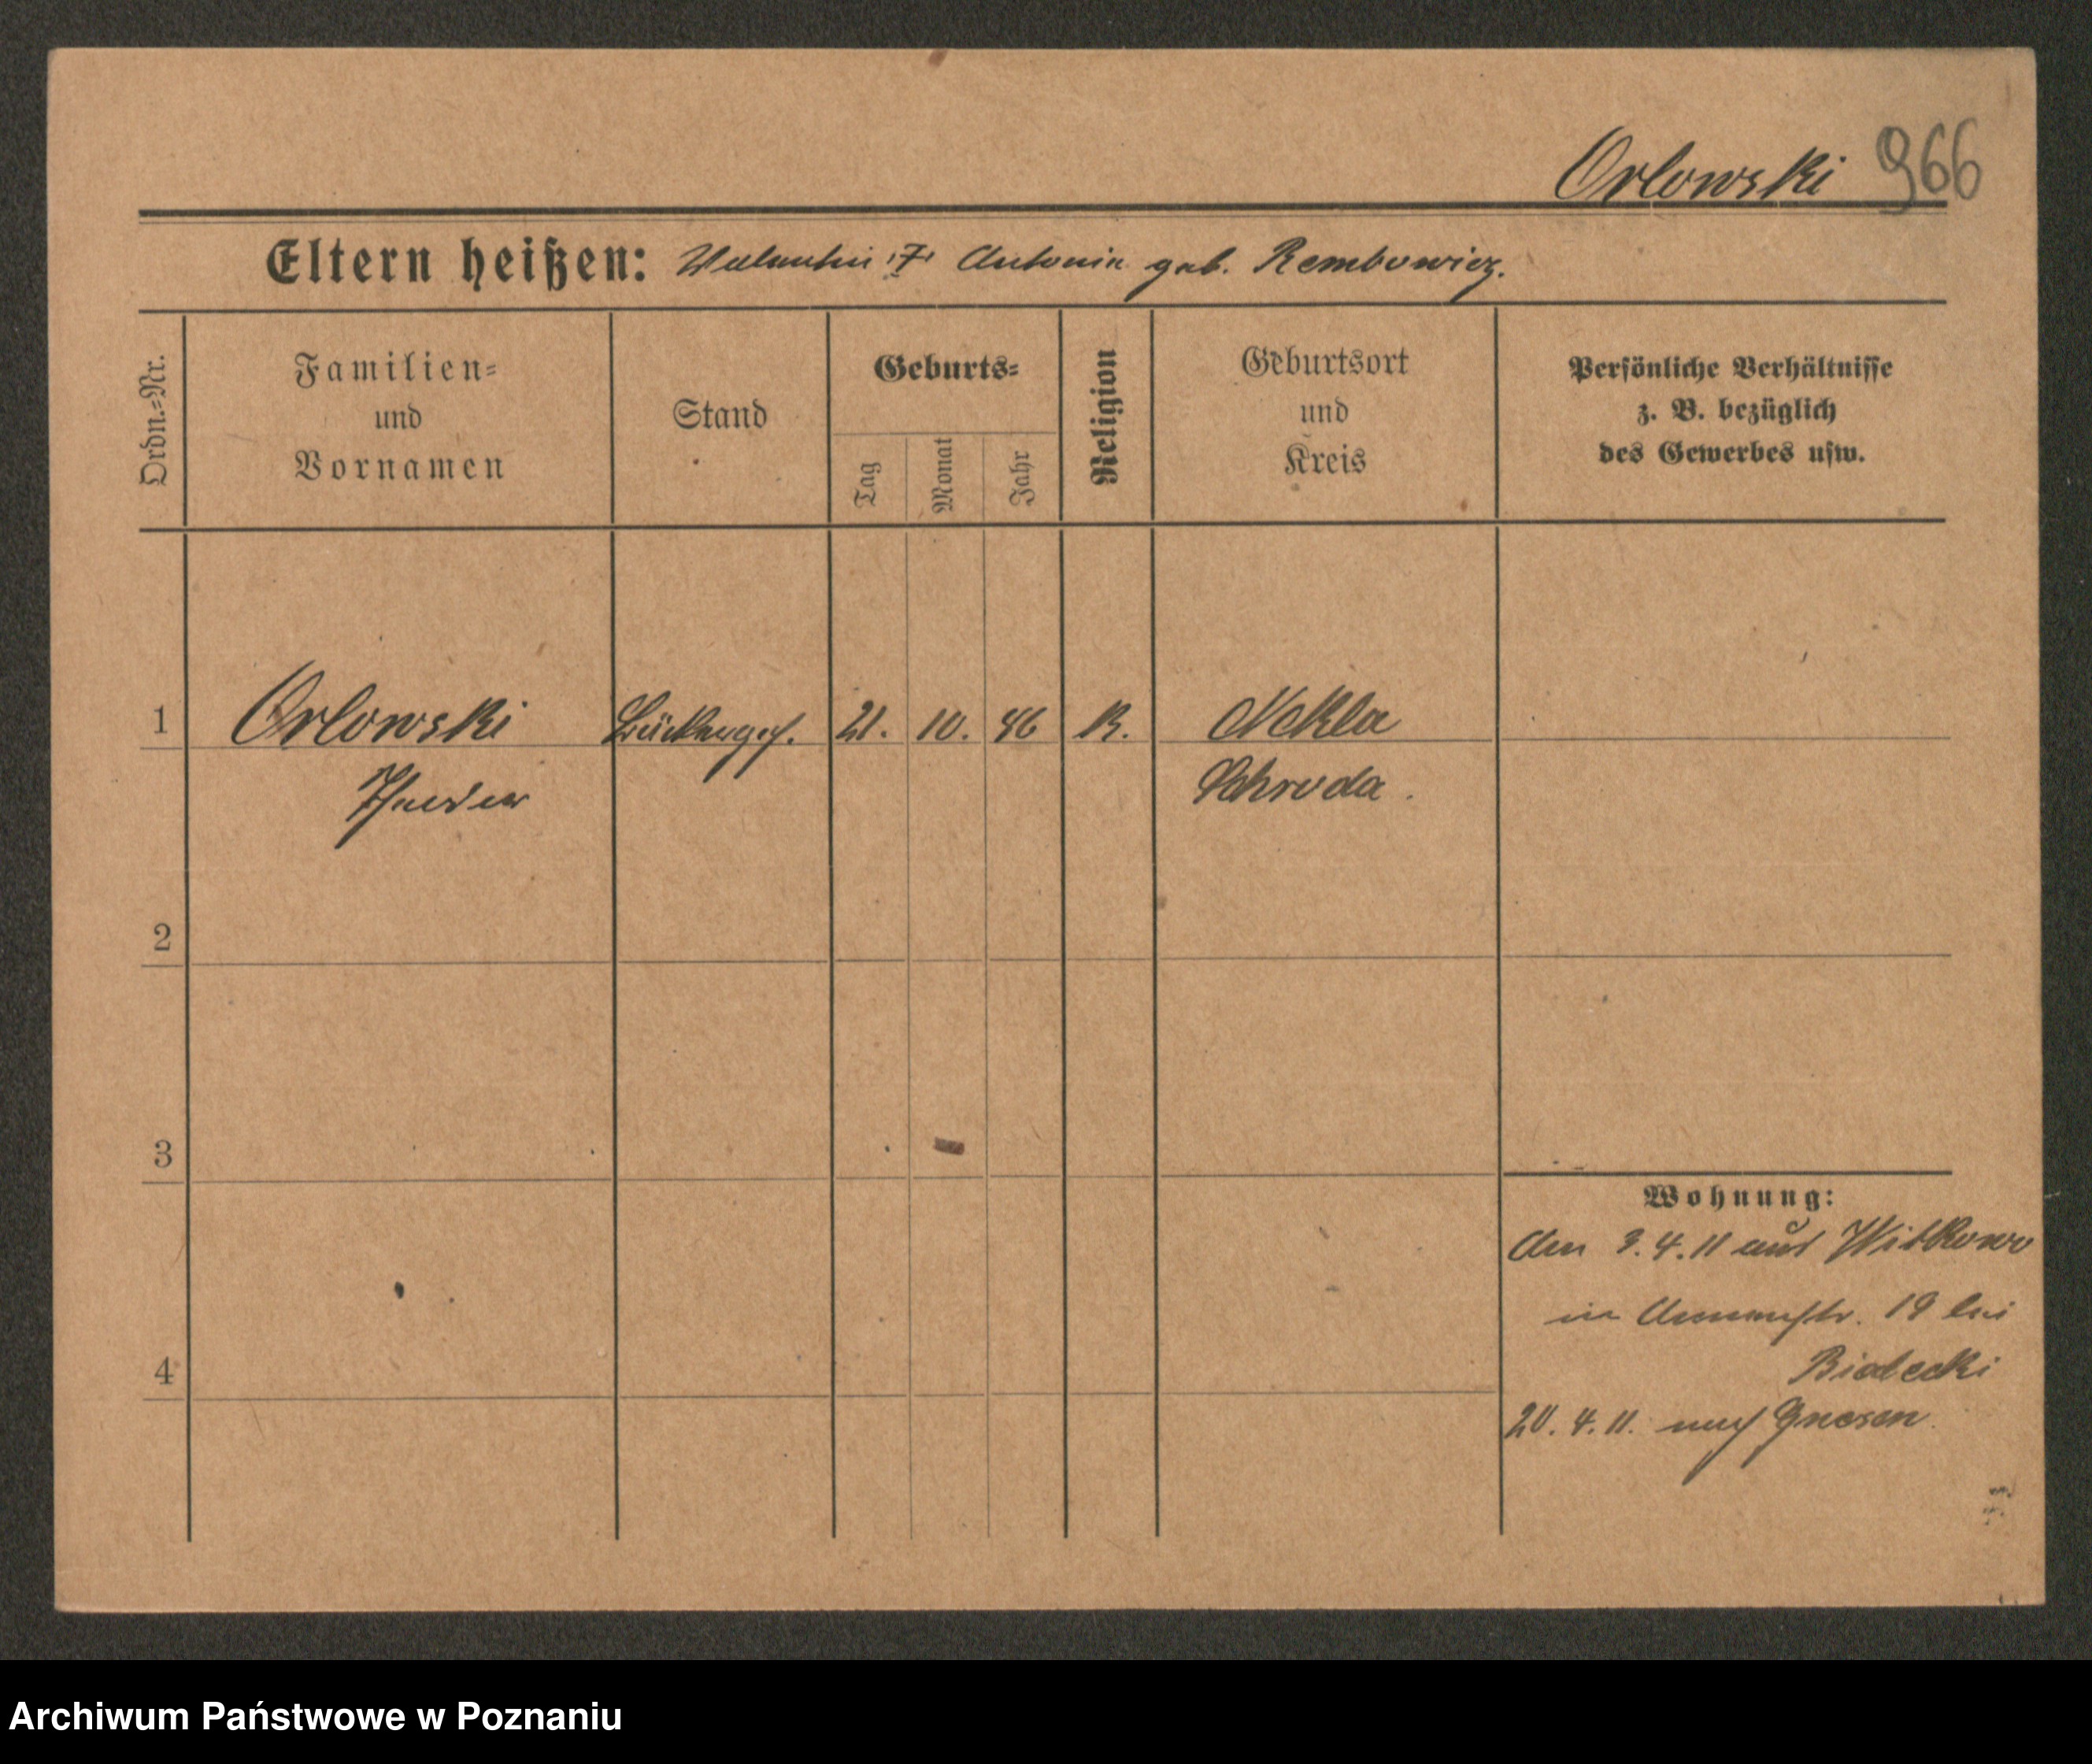 Orlowski 966
Eltern heißen: Valentin † Antonie geb. Rembowicz.
Ordn.=Nr.
Familien=
und
Vornamen
Stand
Geburts=
Tag
Monat
Jahr
Religion
Geburtsort
und
Kreis
Persönliche Verhältnisse
z. B. bezüglich
des Gewerbes usw.
1 Orlowski Bäckerges. 21. 10. 86 K. Nekla
Schroda.
2
3
Wohnung:
den 3. 4. 11 aus Witkowo
in 19 bei
Bialecki
4
20. 4. 11. nach Gnesen
Archiwum Państwowe w Poznaniu